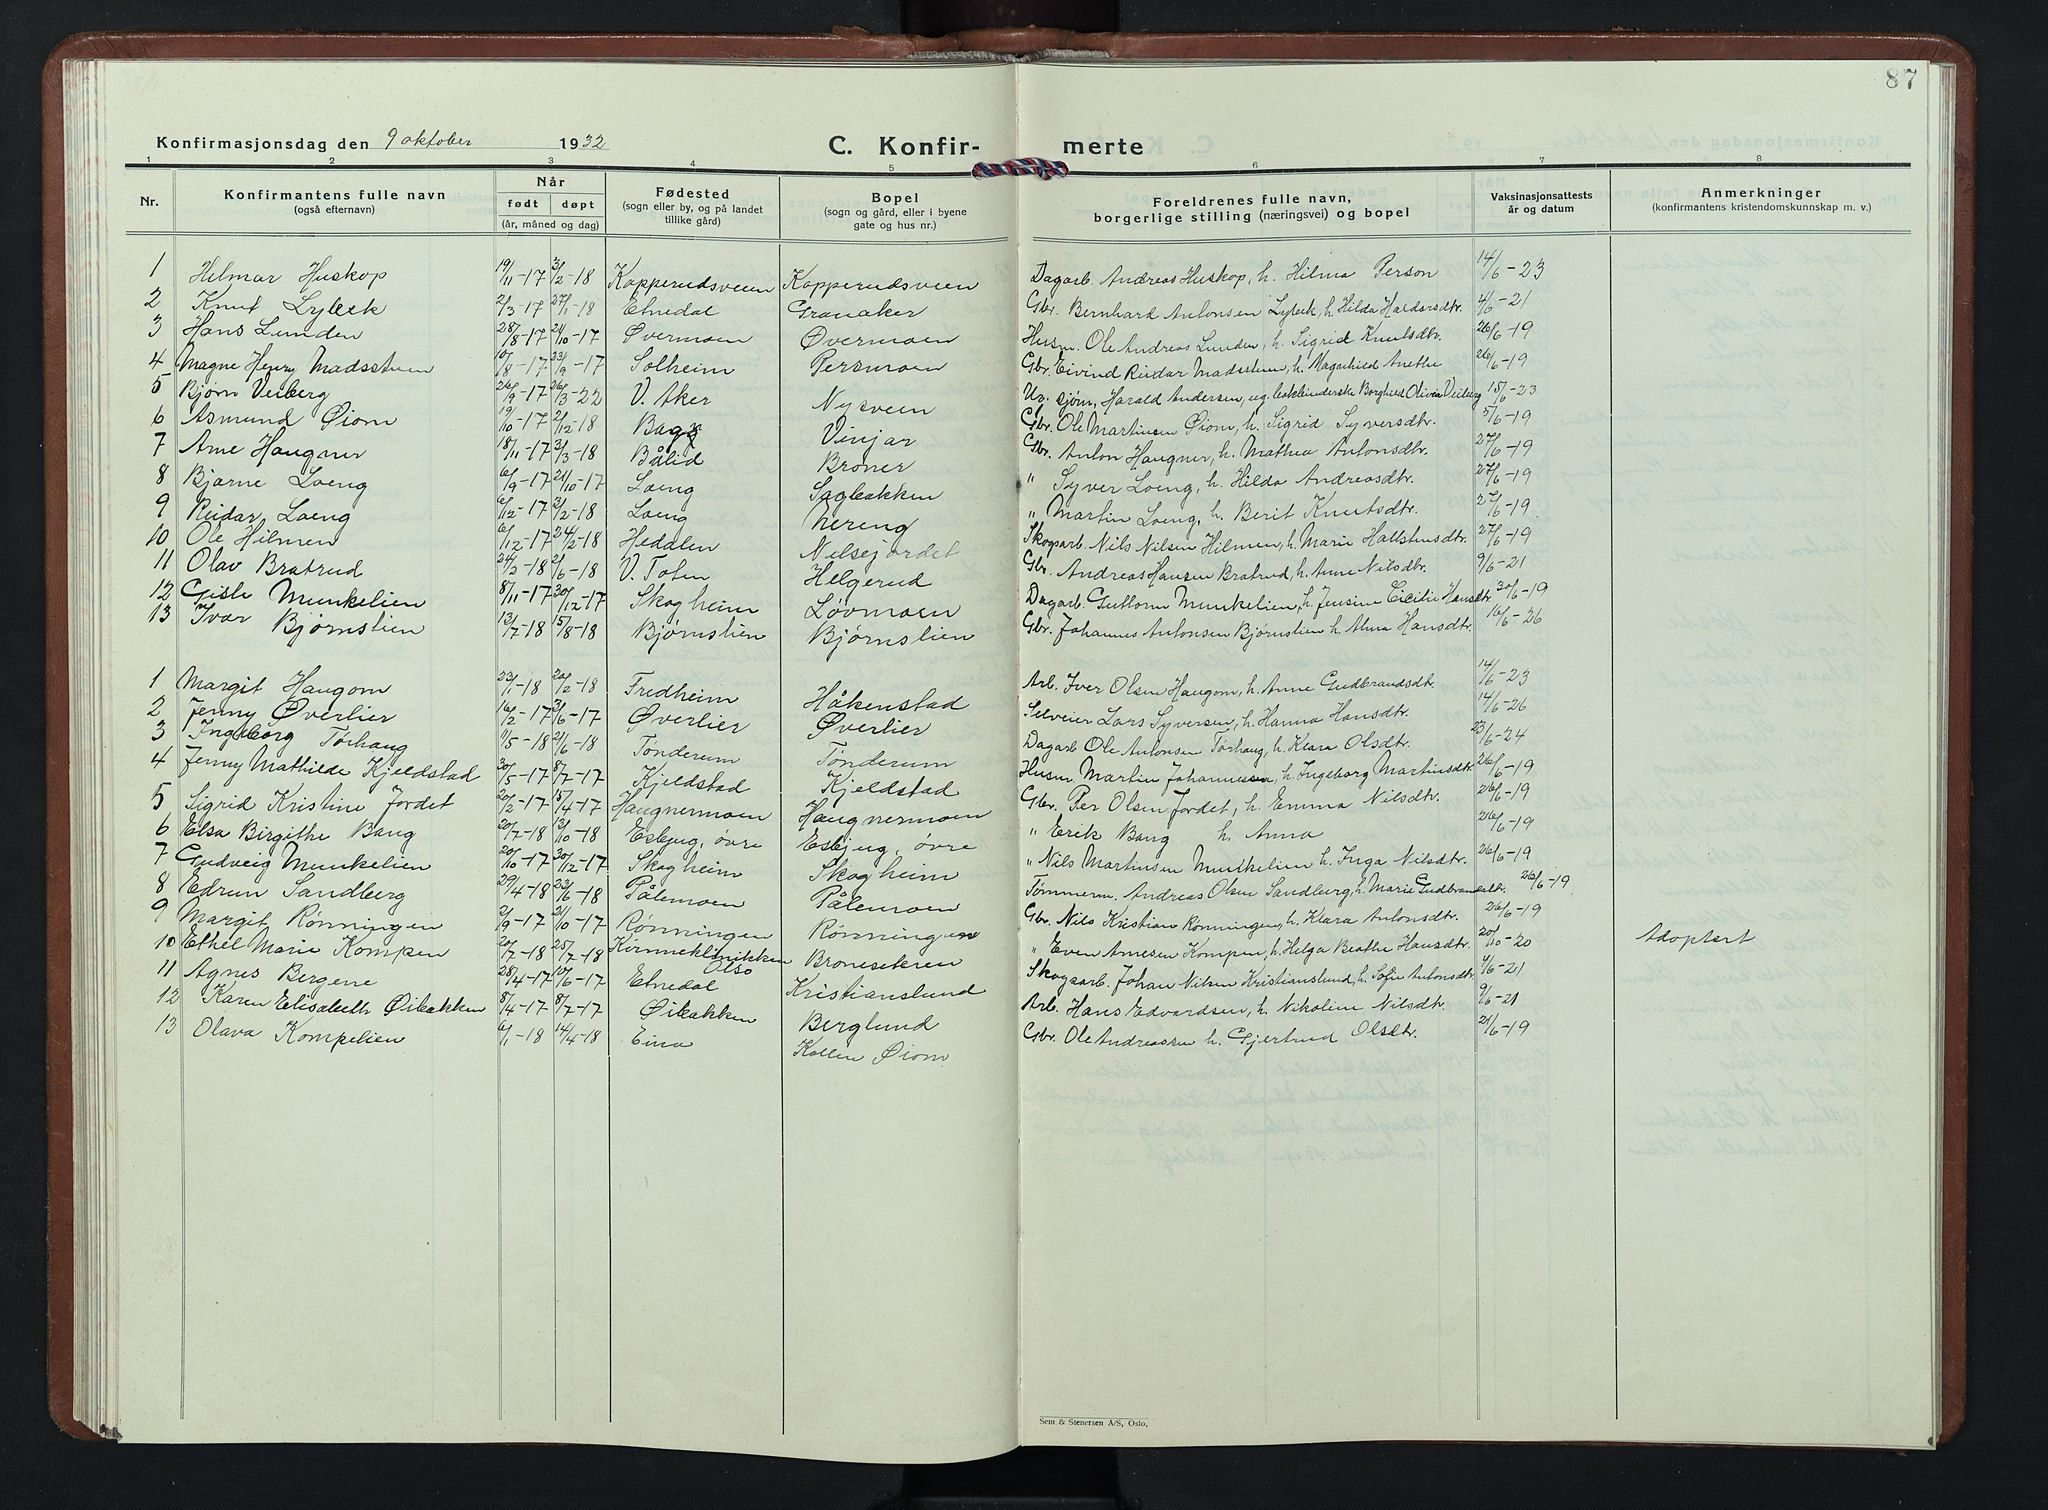 87
Konfirmasjonsdag den 9 oktober 1932 C. Konfir- merte
1 2 3 4 5 6 7 8
Nr. Konfirmantens fulle navn (også efternavn) Når født døpt (år, måned og dag) Fødested (sogn eller by, og på landet tillike gård) Bopel (sogn og gård, eller i byene gate og hus nr.) Foreldrenes fulle navn, borgerlige stilling (næringsvei) og bopel Vaksinasjonsattests år og datum Anmerkninger (konfirmantens kristendomskunnskap m. v.)
1 Hilmar Huskop 19/11-17 3/2-18 Kopperudsveien Kopperudsveen Dagarb. Andreas Huskop, h. Hilma Person 14/6-23
2 Knut Lybeck 2/3-17 27/1-18 Etnedal Granaker Gbr. Bernhard Antonsen Lybeck, h. Hilda Haldorsdtr. 4/6-21
3 Hans Lunden 28/8-17 21/10-17 Øvermoen Øvermoen Husm. Ole Andreas Lunden, h. Sigrid Knutsdtr. 26/6-19
4 Magne Henry Madssteen 10/8-17 23/9-17 Solheim Persmoen Gbr. Eivind Reidar Madssteen, h. Magnhild Anethe 26/6-19
5 Bjørn Veiberg 26/9-17 26/3-22 V. Aker Nysveen Harald Andersen, Borghild Olivia Veiberg 15/6-23
6 Asmund Øiom 19/10-17 2/12-18 Bagn Vinjar Gbr. Ole Martinsen Øiom, h. Sigrid Syversdtr. 5/6-19
7 Arne Haugner 18/11-17 3/3-18 Bålid Broner Gbr. Anton Haugner, h. Mathea Antonsdtr. 27/6-19
8 Bjarne Loeng 6/9-17 21/10-17 Loeng Sagbakken " Syver Loeng, h. Hilda Andreasdtr. 27/6-19
9 Reidar Loeng 6/12-17 3/2-18 Loeng Nereng " Martin Loeng, h. Berit Knutsdtr. 27/6-19
10 Ole Hilmen 6/12-17 24/2-18 Hedalen Nilsejordet Skogsarb. Nils Nilsen Hilmen, h. Marie Hallstensdtr. 27/6-19
11 Olav Bratrud 24/2-18 2/6-18 V. Toten Helgerud Gbr. Andreas Hansen Bratrud, h. Anne Nilsdtr. 9/6-21
12 Gisle Munkelien 8/11-17 30/12-17 Skogheim Løvmoen Dagarb. Guttorm Munkelien, h. Jensine Cicilie Hansdtr 30/6-19
13 Ivar Bjørnslien 13/7-18 15/8-18 Bjørnslien Bjørnslien Gbr. Johannes Antonsen Bjørnslien h. Alma Hansdtr. 16/6-26
1 Margit Haugom 23/1-18 20/2-18 Fredheim Håkenstad Arb. Iver Olsen Haugom, h. Anne Gudbrandsdtr. 14/6-23
2 Jenny Øverlier 16/2-17 3/6-17 Øverlier Øverlier Selveier Lars Syversen, h. Hanna Hansdtr. 14/6-26
3 Ingeborg Tørhaug 11/5-18 2/6-18 Tonderum Tonderum Dagarb Ole Antonsen Tørhaug, h. Klara Olsdtr. 23/6-24
4 Jenny Mathilde Kjeldstad 30/5-17 8/7-17 Kjeldstad Kjeldstad Husm. Martin Johannessen, h. Ingeborg Martinsdtr. 26/6-19
5 Sigrid Kristine Jordet 20/2-17 15/4-17 Haugnermoen Haugnermoen Gbr. Per Olsen Jordet, h. Emma Nilsdtr. 26/6-19
6 Elsa Birgithe Bang 20/7-18 13/10-18 Esbjug, øvre Esbjug, øvre " Erik Bang h. Anna 26/6-19
7 Gudveig Munkelien 20/10-17 30/12-17 Skogheim Skogheim " Nils Martinsen Munkelien h. Inga Nilsdtr. 26/6-19
8 Edrun Sandberg 29/4-18 23/6-18 Pålemoen Pålemoen Tømmerm. Andreas Olsen Sandberg, h. Marie Gudbrandsdtr. 26/6-19
9 Margit Rønningen 2/9-17 21/10-17 Rønningen Rønningen Gbr. Nils Kristian Rønningen, h. Klara Antonsdtr. 26/6-19
10 Ethel Marie Kompen 20/7-18 25/7-18 Kvinneklinikken Olso Bronesekren " Even Arnesen Kompen, h. Helga Beathe Hansdtr. 20/10-20 Adoptert
11 Agnes Bergene 28/4-17 10/6-17 Etnedal Kristianslund Skogsarb. Johan Nilsen Kristianslund, h. Sofie Antonsdtr. 4/6-21
12 Karen Elisabeth Øibakken 8/4-17 8/7-17 Øibakken Berglund Arb. Hans Edvardsen, h. Nikoline Nilsdtr. 9/6-21
13 Olava Kompelien 6/1-18 14/4-18 Eina Kollen Øiom Gbr. Ole Andreassen h. Gjertrud Olsdtr. 21/6-19
Sem & Stenersen A/S, Oslo.